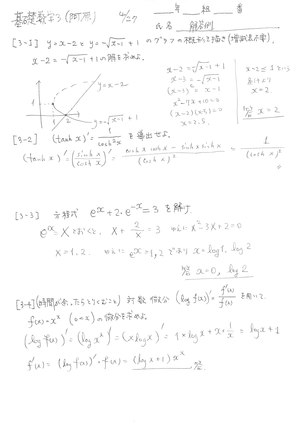 基礎数学3(阿原) 4/27 年 組 番
氏名 解答例
[3-1] y=x-2 と y=-√x-1+1 のグラフの概形を描き(増減表不要),
x-2=-√x-1+1 の解を求め.
y=x-2
y=-√x-1+1
x-2=-√x-1+1
x-3=-√x-1
(x-3)²=x-1
x²-7x+10=0
(x-2)(x-5)=0
x=2,5
x=2
答 x=2
[3-2] (tanh x)'=1/cosh²x を導出せよ.
(tanh x)'=(sinh x/cosh x)'=(cosh x cosh x - sinh x sinh x)/(cosh x)²=1/(cosh x)²
[3-3] 方程式 eˣ+2・e⁻ˣ=3 を解け.
eˣ=X とおくと, X+2/X=3 ゆえに X²-3X+2=0
X=1,2. ゆえに eˣ=1,2 であり x=log1, log2
答 x=0, log2
[3-4](時間が余ったらとくこと) 対数微分 (log f(x))'=f'(x)/f(x) を用いて,
f(x)=xˣ (0<x) の微分を求めよ.
(log f(x))'=(log xˣ)'=(x log x)'=1×log x+x・1/x=log x+1
f'(x)=(log f(x))'・f(x)=(log x+1)xˣ 答